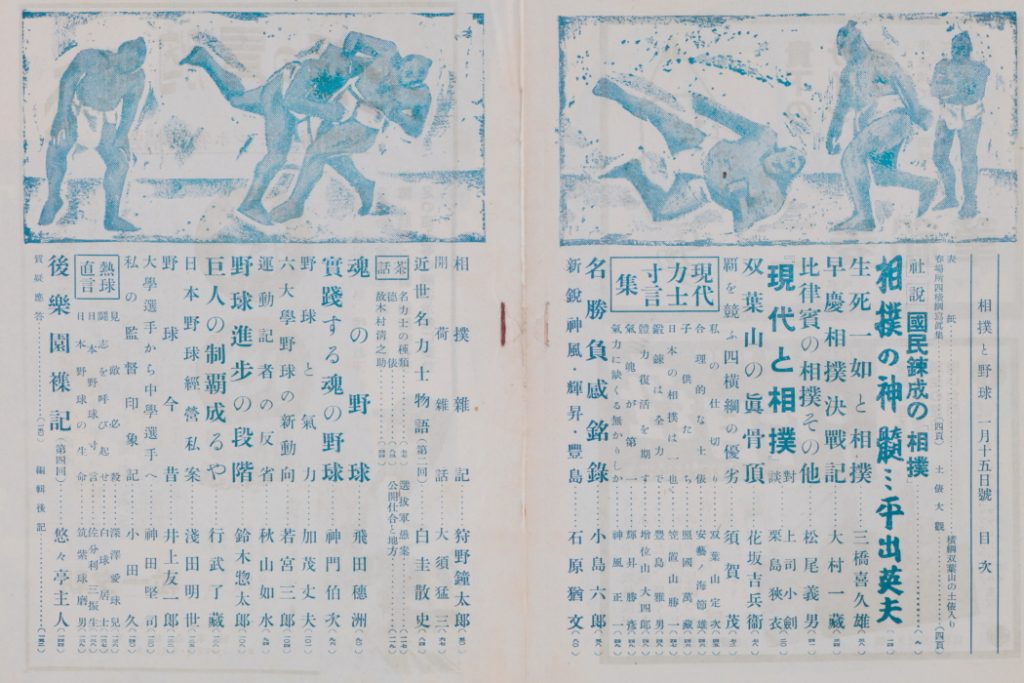 相撲と野球 一月十五日號 目次
表紙
春場所四横綱寫眞集 (四頁)
土俵大觀 横綱双葉山の土俵入り (四頁)
社説 國民錬成の「相撲」
相撲の神髓…平出英夫
生死一如と相撲 三橋喜久雄
早慶相撲決戰記 大村一藏
比律賓の相撲その他 松尾義男
『現代と相撲』 對談 上司小劍 栗島狹衣
双葉山の眞骨頂 花坂吉兵衞
覇を競ふ四横綱の優劣 須賀茂
現代力士寸言集
私の仕切り 双葉山定次
合理的な土俵 安藝ノ海節雄
子供たち 照國萬藏
日本の相撲は 笠置山勝一
鍛錬は全力で 豊島雅男
體力復活を期す 増位山大四郎
氣魄が第一 輝昇勝彦
氣力に缺くる無かりしか 神風正一
名勝負感銘錄 小島六郎
新鋭神風・輝昇・豊島 石原猶文
相撲雜記 狩野鐘太郎
開荷雜話 大須猛三
近世名力士物語 (第二回) 白圭散史
茶話
名力士の種類
德俵
故木村清之助
選拔軍愚案
公開仕合と地方
魂の野球 飛田穗洲
實踐する魂の野球 神門伯次
野球と氣力 加茂丈夫
六大學野球の新動向 若宮三郎
運動記者の反省 秋山如水
野球進歩の段階 鈴木惣太郎
巨人の制覇成るや 行武了藏
日本野球經營私案 淺田明世
野球今昔 井上友一郎
大學選手から中學選手へ 神田堅司
私の監督印象記 小田久
熱球直言
見敵必殺 深澤愛球兒
鬪志を呼び起せ 白球居士
日本野球寸言 佐分利三振生
日本野球の生命 筑紫球磨男
後樂園襍記 (第四回) 悠々亭主人
質疑應答
編輯後記